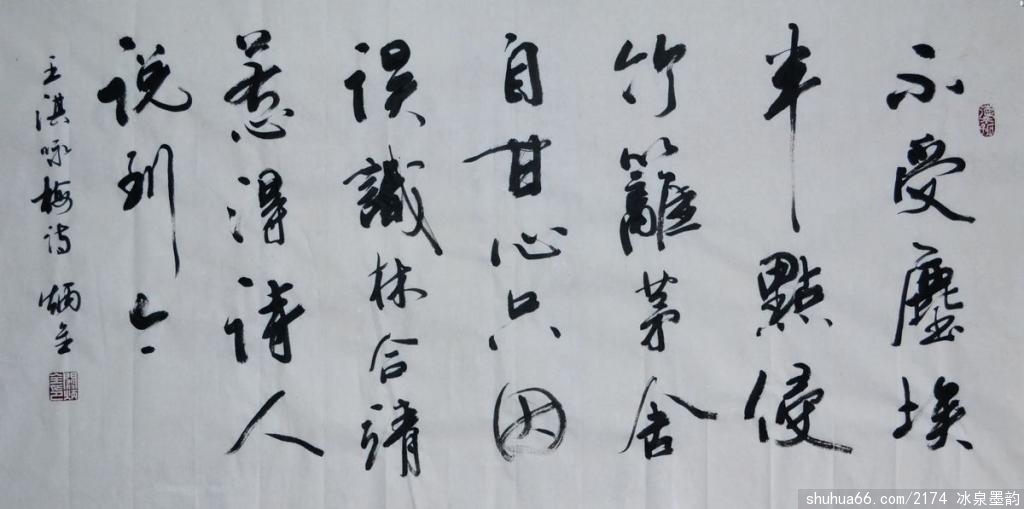 不受塵埃
半點侵
竹籬茅舍
自甘心只因
误識林合靖
惹得诗人
说到今
王淇咏梅诗 炳全
shuhua66.com/2174 冰泉墨韵